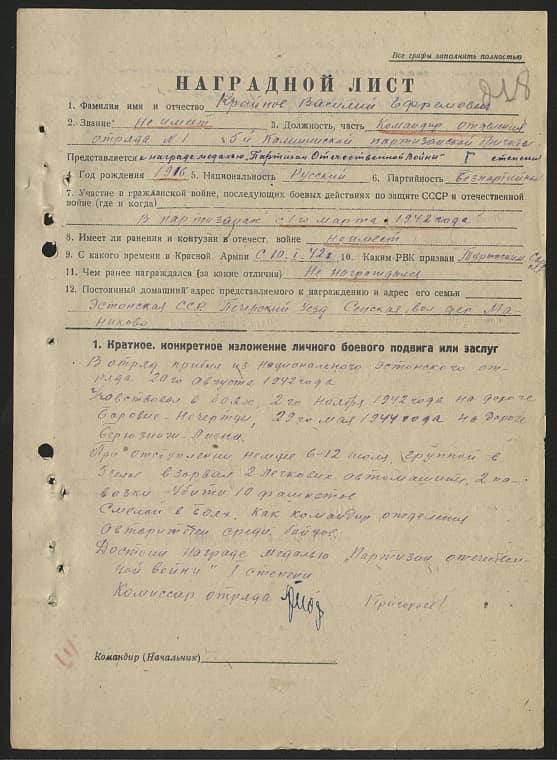 Все графы заполнить полностью
218
НАГРАДНОЙ ЛИСТ
1. Фамилия имя и отчество Крайнов Василий Ефремович
2. Звание Не имеет 3. Должность, часть Командир отделения
отряда №1 5й Калининской партизанской бригады
Представляется к награде медалью "Партизан Отечественной Войны" I степени
4. Год рождения 1916 5. Национальность Русский 6. Партийность Безпартийный
7. Участие в гражданской войне, последующих боевых действиях по защите СССР и отечественной
войне (где и когда)
В партизанах с 1го марта 1942 года
8. Имеет ли ранения и контузии в отечест. войне не имеет
9. С какого времени в Красной Армии С 10.I.42г. 10. Каким РВК призван
11. Чем ранее награждался (за какие отличия) Не награждался
12. Постоянный домашний адрес представляемого к награждению и адрес его семьи
Эстонская ССР Печерский уезд Сенская вол дер Ма-
никово
1. Краткое, конкретное изложение личного боевого подвига или заслуг
В отряд прибыл из национального Эстонского от-
ряда 20го августа 1942 года
Участвовал в боях, 2го ноября 1942 года на дороге
29го мая 1944 года на дороге
При отступлении немцев 6-12 июля, группой в
взорвал 2 легковых автомашины, 2 по-
возки убито 10 фашистов
Смелый в боях, как командир отделения
авторитетен среди бойцов.
Достоин награде медалью „Партизан отечествен-
ной войны" I степени
Комиссар отряда Григорьев
Командир (Начальник)